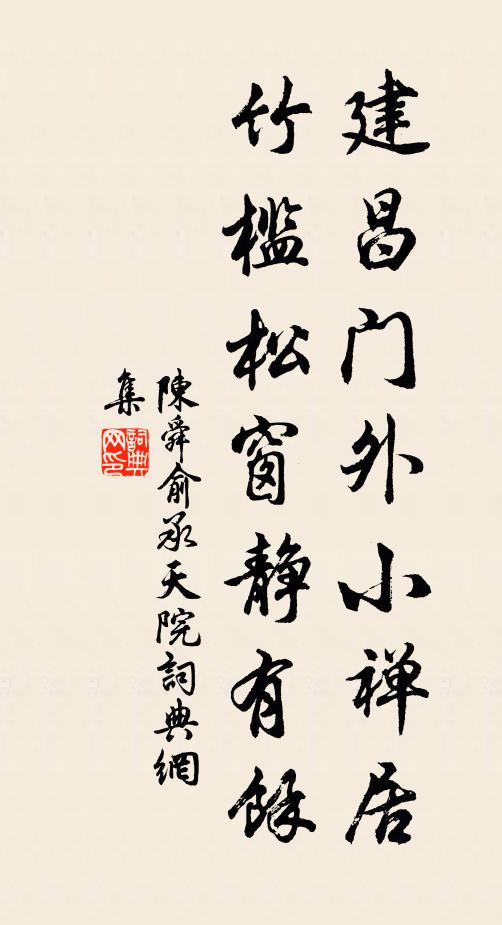 建昌门外小禅居
竹槛松窗静有馀
陳舜俞承天院詞典網
集
詞典网印